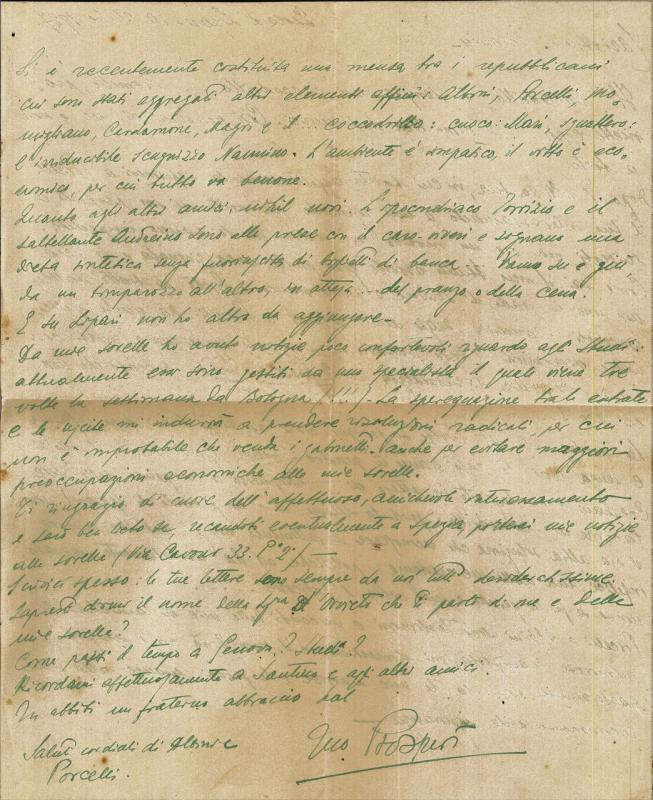 Si è recentemente costituita una mensa tra i repubblicani
cui sono stati aggregati altri elementi affini: Alboni, Porcelli, Mo-
migliano, Cardamone, Magri e il ... coccodrillo: cuoco: Mari, sguattero:
l'irriducibile scugnizzo Nannino. L'ambiente è simpatico, il vitto è eco-
nomico, per cui tutto va benone.
Quanto agli altri amici, nihil novi. L'ipocondriaco e il
saltellante Andreino sono alle prese con il caro viveri e sognano una
dieta sintetica senza fuoriuscita di biglietti di banca. Vanno su e giù
da un all'altro, in attesa ... del pranzo o della cena.
E su Lipari non ho altro da aggiungere.
Da mie sorelle ho avuto notizie poco confortevoli riguardo agli Studi:
attualmente essi sono gestiti da uno specialista il quale viene tre
volte la settimana da Bologna (!!!) - La sperequazione tra le entrate
e le uscite mi indurrà a prendere risoluzioni radicali per cui
non è improbabile che venda i gabinetti anche per evitare maggiori
preoccupazioni economiche alle mie sorelle.
Ti ringrazio di cuore dell'affettuoso, amichevole interessamento
e sarò ben lieto se, recandoti eventualmente a Spezia, porterai mie notizie
alle sorelle (Via Cavour 33. P° 2°) -
Scrivici spesso: le tue lettere sono sempre da noi tutti desideratissime.
Sapresti dirmi il nome della Sig.ra che ti parlò di me e delle
mie sorelle?
Come passi il tempo a Genova? Studi?
Ricordami affettuosamente a Santino e agli altri amici.
Tu abbiti un fraterno abbraccio dal
tuo Prosperi
Saluti cordiali di
Porcelli.